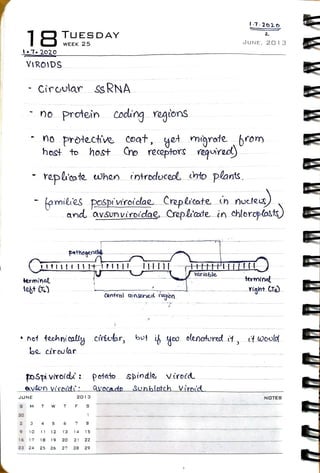 1.7.2020
2
18 TUESDAY
WEEK 25
JUNE, 2013
1.7.2020
VIROIDS
- Circular ssRNA
- no protein coding regions
- no protective coat, yet migrate from
host to host (no receptors required)
- replicate when introduced into plants.
- families pospiviroidae (replicate in nucleus)
and avsunviroidae (replicate in chloroplasts)
pathogenicity
variable
terminal
left (TL)
terminal
right (TR)
central conserved region
• not technically circular, but if you denatured it, it would
be circular
pospiviroidi : potato spindle viroid.
avsun viroidi : avocado sunblotch viroid
JUNE 2013
NOTES
S M T W T F S
30 1
2 3 4 5 6 7 8
9 10 11 12 13 14 15
16 17 18 19 20 21 22
23 24 25 26 27 28 29